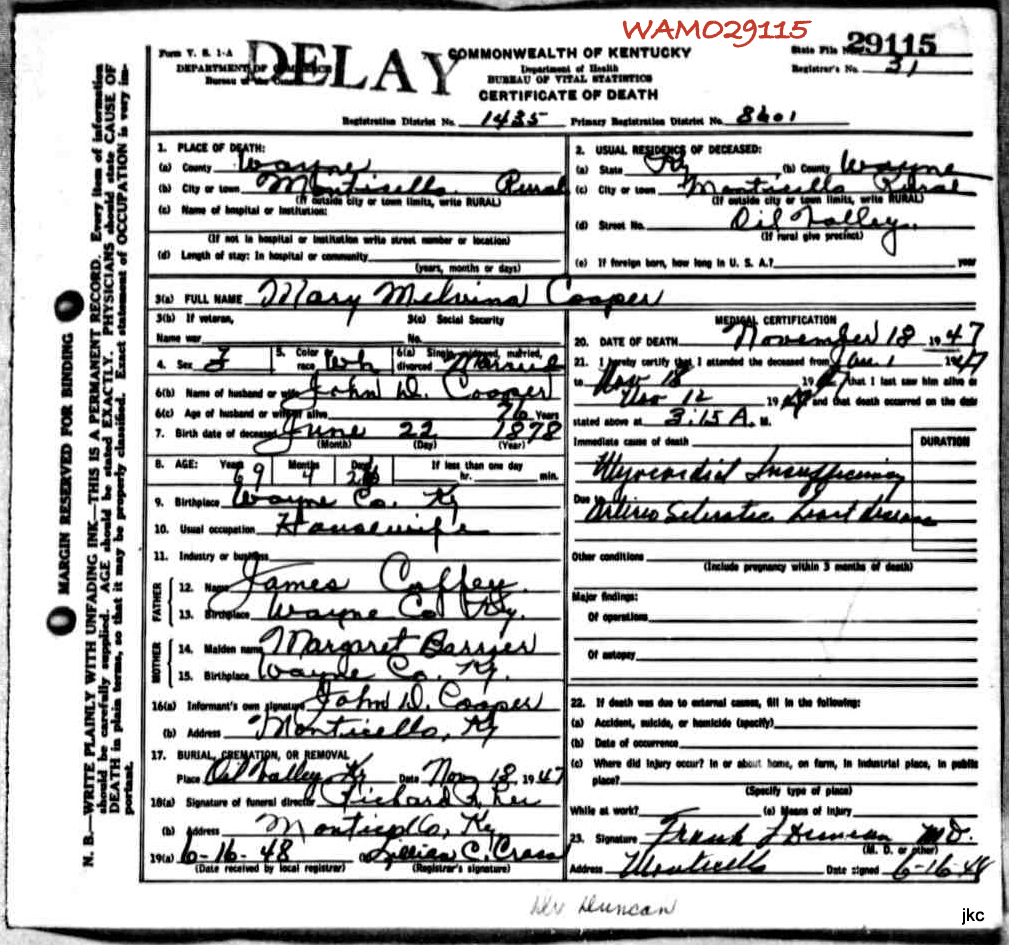 WAMO29115
Form V. S. 1-A
DELAY
COMMONWEALTH OF KENTUCKY
State File No. 29115
DEPARTMENT OF
Department of Health
Registrar's No. 31
Bureau of the
BUREAU OF VITAL STATISTICS
CERTIFICATE OF DEATH
Registration District No. 1435 Primary Registration District No. 8601
N. B.—WRITE PLAINLY WITH UNFADING INK—THIS IS A PERMANENT RECORD. Every item of information
should be carefully supplied. AGE should be stated EXACTLY. PHYSICIANS should state CAUSE OF
DEATH in plain terms, so that it may be properly classified. Exact statement of OCCUPATION is very im-
portant.
MARGIN RESERVED FOR BINDING
1. PLACE OF DEATH:
(a) County Wayne
(b) City or town Monticello Rural
(If outside city or town limits, write RURAL)
(c) Name of hospital or institution:
(If not in hospital or institution write street number or location)
(d) Length of stay: In hospital or community
(years, months or days)
2. USUAL RESIDENCE OF DECEASED:
(a) State Ky (b) County Wayne
(c) City or town Monticello Rural
(If outside city or town limits, write RURAL)
(d) Street No. Oil Valley
(If rural give precinct)
(e) If foreign born, how long in U. S. A.? year
3(a) FULL NAME Mary Melvina Cooper
3(b) If veteran, 3(c) Social Security
Name war No.
4. Sex F 5. Color race Wh 6(a) Single, widowed, married, divorced Married
6(b) Name of husband or wife John D. Cooper
6(c) Age of husband or wife if alive 76 Years
7. Birth date of deceased June 22 1878
(Month) (Day) (Year)
8. AGE: Years 69 Months 4 Days 26 If less than one day
hr. min.
9. Birthplace Wayne Co. Ky
10. Usual occupation Housewife
11. Industry or business
FATHER
12. Name James Coffey
13. Birthplace Wayne Co Ky.
MOTHER
14. Maiden name Margaret Barrier
15. Birthplace Wayne Co. Ky.
16(a) Informant's own signature John D. Cooper
(b) Address Monticello, Ky
17. BURIAL, CREMATION, OR REMOVAL
Place Oil Valley Ky Date Nov 18 1947
18(a) Signature of funeral director Richard
(b) Address Monticello, Ky
19(a) 6-16-48 (b) Lillian C. Cross
(Date received by local registrar) (Registrar's signature)
MEDICAL CERTIFICATION
20. DATE OF DEATH November 18 1947
21. I hereby certify that I attended the deceased from 1 1947
to Nov 18 1947 that I last saw him alive on
Nov 12 1947 and that death occurred on the date
stated above at 3:15 A. M.
Immediate cause of death
DURATION
Myocardial Insufficiency
Due to
Arterio Sclerotic heart disease
Other conditions
(Include pregnancy within 3 months of death)
Major findings:
Of operations
Of autopsy
22. If death was due to external causes, fill in the following:
(a) Accident, suicide, or homicide (specify)
(b) Date of occurrence
(c) Where did injury occur? In or about home, on farm, in industrial place, in public
place?
(Specify type of place)
While at work? (e) Means of injury
23. Signature Frank L Duncan M.D.
(M. D. or other)
Address Monticello Date signed 6-16-48
Dr Duncan
jkc